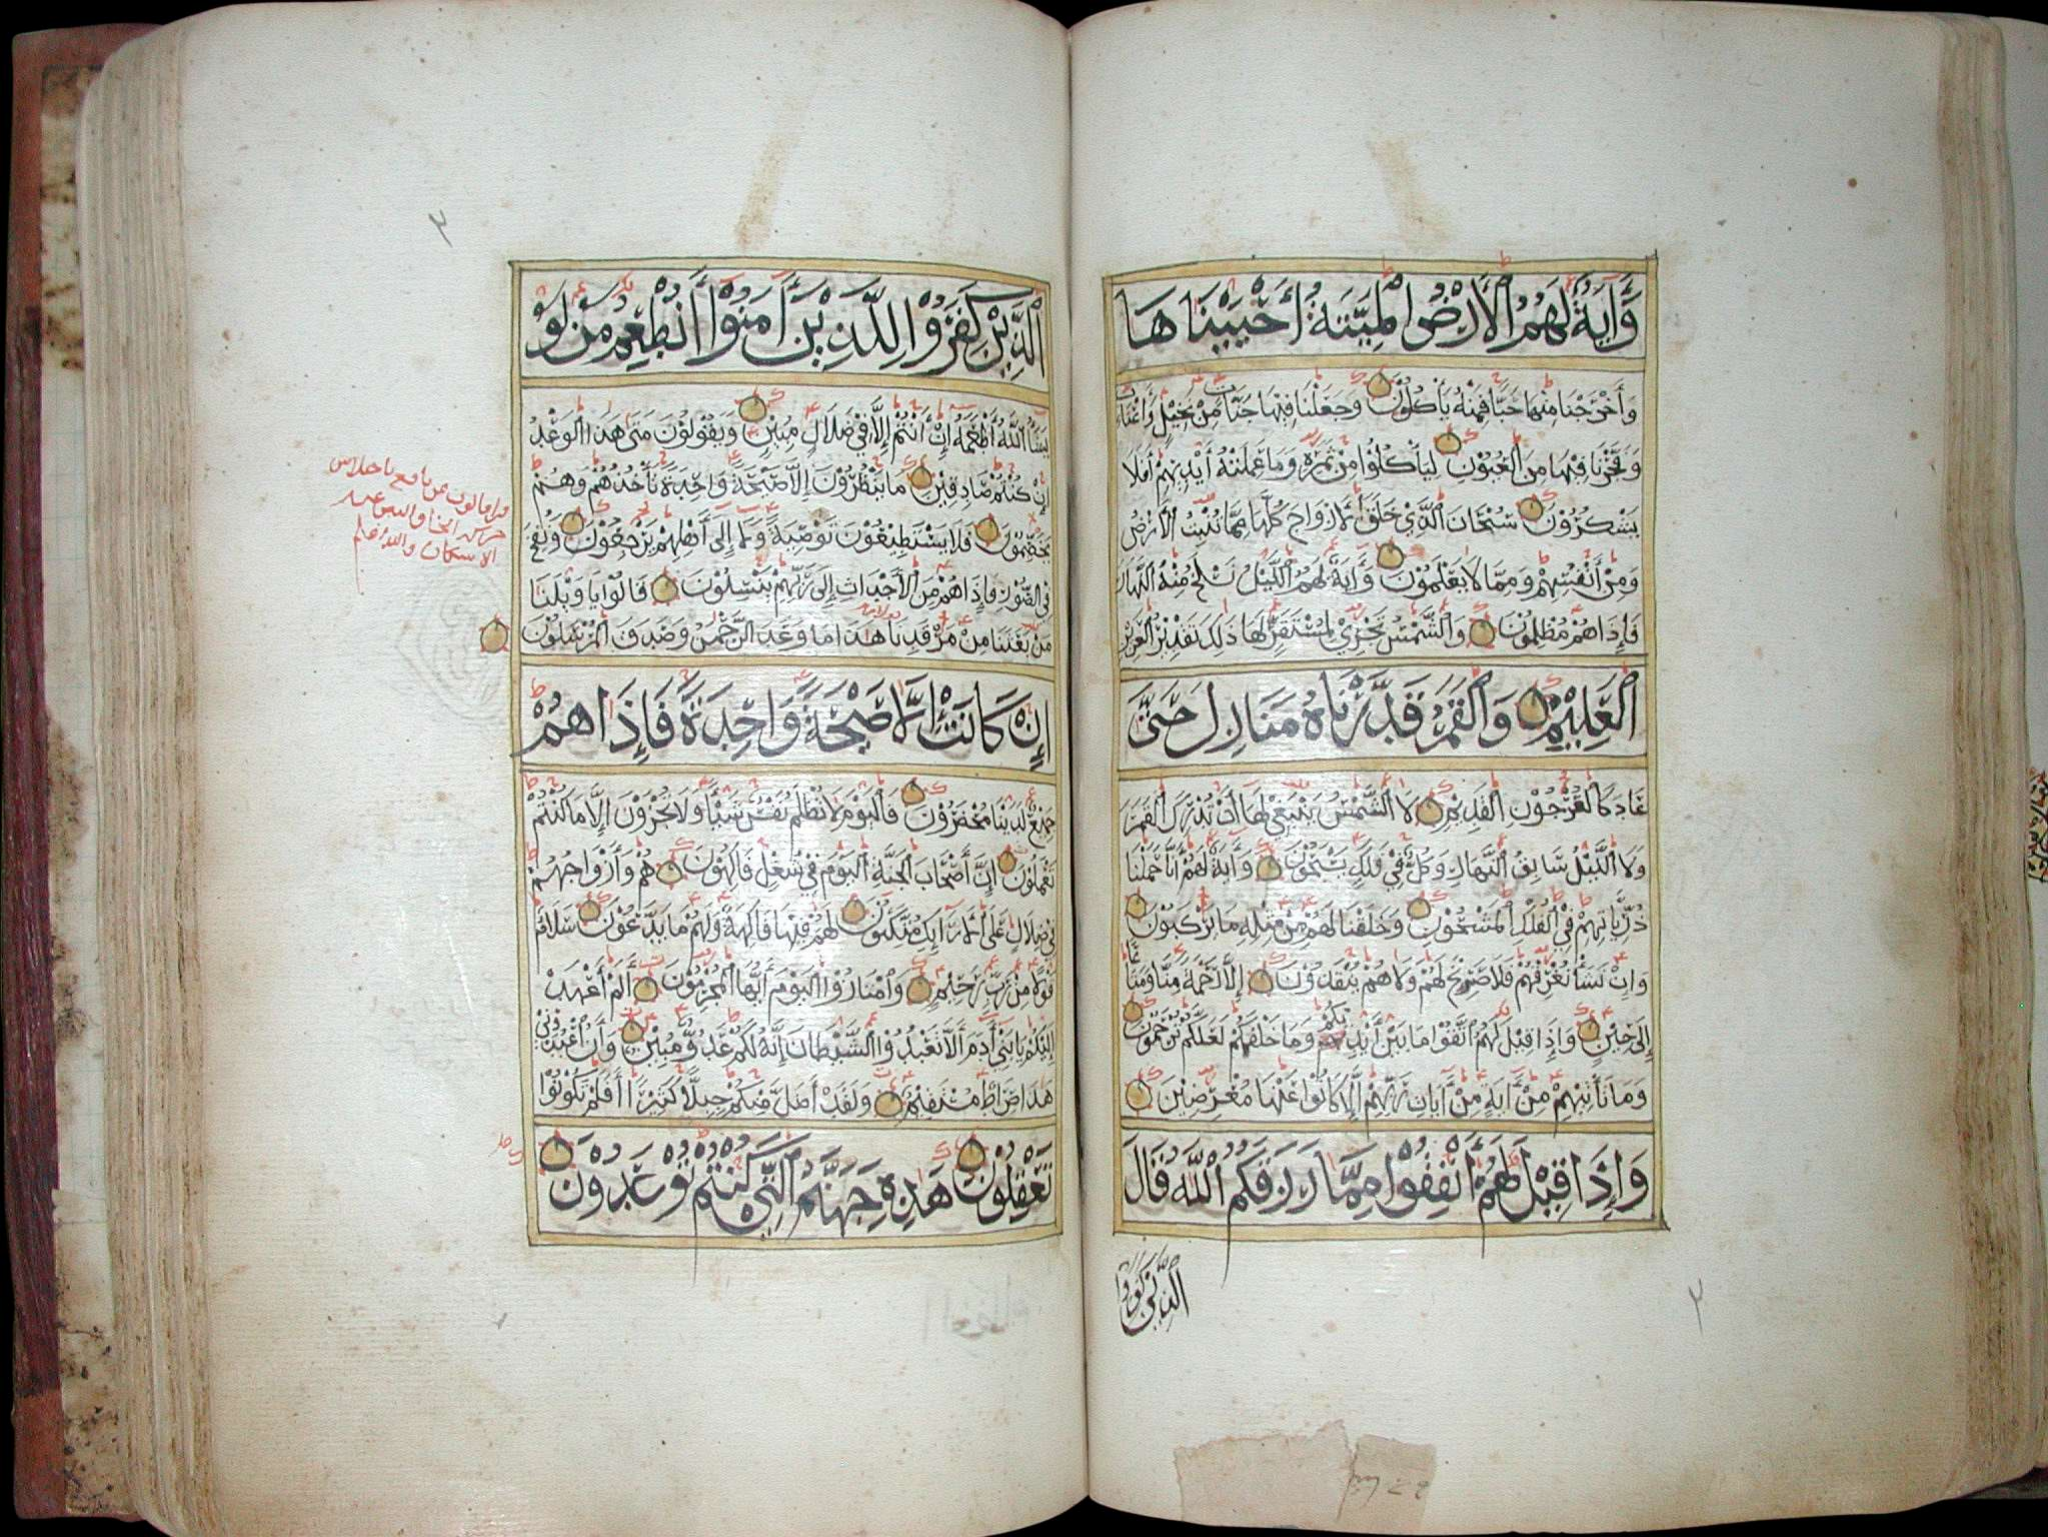 وَآيَةٌ لَهُمُ الْأَرْضُ الْمَيِّتَةُ أَحْيَيْنَاهَا
وَأَخْرَجْنَا مِنْهَا حَبًّا فَمِنْهُ يَأْكُلُونَ وَجَعَلْنَا فِيهَا جَنَّاتٍ مِنْ نَخِيلٍ وَأَعْنَابٍ
وَفَجَّرْنَا فِيهَا مِنَ الْعُيُونِ لِيَأْكُلُوا مِنْ ثَمَرِهِ وَمَا عَمِلَتْهُ أَيْدِيهِمْ أَفَلَا
يَشْكُرُونَ سُبْحَانَ الَّذِي خَلَقَ الْأَزْوَاجَ كُلَّهَا مِمَّا تُنْبِتُ الْأَرْضُ
وَمِنْ أَنْفُسِهِمْ وَمِمَّا لَا يَعْلَمُونَ وَآيَةٌ لَهُمُ اللَّيْلُ نَسْلَخُ مِنْهُ النَّهَارَ
فَإِذَا هُمْ مُظْلِمُونَ وَالشَّمْسُ تَجْرِي لِمُسْتَقَرٍّ لَهَا ذَلِكَ تَقْدِيرُ الْعَزِيزِ
الْعَلِيمِ وَالْقَمَرُ قَدَّرْنَاهُ مَنَازِلَ حَتَّى
عَادَ كَالْعُرْجُونِ الْقَدِيمِ لَا الشَّمْسُ يَنْبَغِي لَهَا أَنْ تُدْرِكَ الْقَمَرَ
وَلَا اللَّيْلُ سَابِقُ النَّهَارِ وَكُلٌّ فِي فَلَكٍ يَسْبَحُونَ وَآيَةٌ لَهُمْ أَنَّا حَمَلْنَا
ذُرِّيَّاتِهِمْ فِي الْفُلْكِ الْمَشْحُونِ وَخَلَقْنَا لَهُمْ مِنْ مِثْلِهِ مَا يَرْكَبُونَ
وَإِنْ نَشَأْ نُغْرِقْهُمْ فَلَا صَرِيخَ لَهُمْ وَلَا هُمْ يُنْقَذُونَ إِلَّا رَحْمَةً مِنَّا وَمَتَاعًا
إِلَى حِينٍ وَإِذَا قِيلَ لَهُمُ اتَّقُوا مَا بَيْنَ أَيْدِيكُمْ وَمَا خَلْفَكُمْ لَعَلَّكُمْ تُرْحَمُونَ
وَمَا تَأْتِيهِمْ مِنْ آيَةٍ مِنْ آيَاتِ رَبِّهِمْ إِلَّا كَانُوا عَنْهَا مُعْرِضِينَ
وَإِذَا قِيلَ لَهُمْ أَنْفِقُوا مِمَّا رَزَقَكُمُ اللَّهُ قَالَ
الَّذِينَ كَفَرُوا
الَّذِينَ كَفَرُوا لِلَّذِينَ آمَنُوا أَنُطْعِمُ مَنْ لَوْ
يَشَاءُ اللَّهُ أَطْعَمَهُ إِنْ أَنْتُمْ إِلَّا فِي ضَلَالٍ مُبِينٍ وَيَقُولُونَ مَتَى هَذَا الْوَعْدُ
إِنْ كُنْتُمْ صَادِقِينَ مَا يَنْظُرُونَ إِلَّا صَيْحَةً وَاحِدَةً تَأْخُذُهُمْ وَهُمْ
يَخْصِّمُونَ فَلَا يَسْتَطِيعُونَ تَوْصِيَةً وَلَا إِلَى أَهْلِهِمْ يَرْجِعُونَ وَنُفِخَ
فِي الصُّورِ فَإِذَا هُمْ مِنَ الْأَجْدَاثِ إِلَى رَبِّهِمْ يَنْسِلُونَ قَالُوا يَا وَيْلَنَا
مَنْ بَعَثَنَا مِنْ مَرْقَدِنَا هَذَا مَا وَعَدَ الرَّحْمَنُ وَصَدَقَ الْمُرْسَلُونَ
إِنْ كَانَتْ إِلَّا صَيْحَةً وَاحِدَةً فَإِذَا هُمْ
جَمِيعٌ لَدَيْنَا مُحْضَرُونَ فَالْيَوْمَ لَا تُظْلَمُ نَفْسٌ شَيْئًا وَلَا تُجْزَوْنَ إِلَّا مَا كُنْتُمْ
تَعْمَلُونَ إِنَّ أَصْحَابَ الْجَنَّةِ الْيَوْمَ فِي شُغْلٍ فَاكِهُونَ هُمْ وَأَزْوَاجُهُمْ
فِي ظِلَالٍ عَلَى الْأَرَائِكِ مُتَّكِئُونَ لَهُمْ فِيهَا فَاكِهَةٌ وَلَهُمْ مَا يَدَّعُونَ سَلَامٌ
قَوْلًا مِنْ رَبٍّ رَحِيمٍ وَامْتَازُوا الْيَوْمَ أَيُّهَا الْمُجْرِمُونَ أَلَمْ أَعْهَدْ
إِلَيْكُمْ يَا بَنِي آدَمَ أَلَّا تَعْبُدُوا الشَّيْطَانَ إِنَّهُ لَكُمْ عَدُوٌّ مُبِينٌ وَأَنِ اعْبُدُونِي
هَذَا صِرَاطٌ مُسْتَقِيمٌ وَلَقَدْ أَضَلَّ مِنْكُمْ جِبِلًّا كَثِيرًا أَفَلَمْ تَكُونُوا
تَعْقِلُونَ هَذِهِ جَهَنَّمُ الَّتِي كُنْتُمْ تُوعَدُونَ
قرا قالون عن نافع باختلاس
حركة الخا والنص عنه
الاسكان والله أعلم